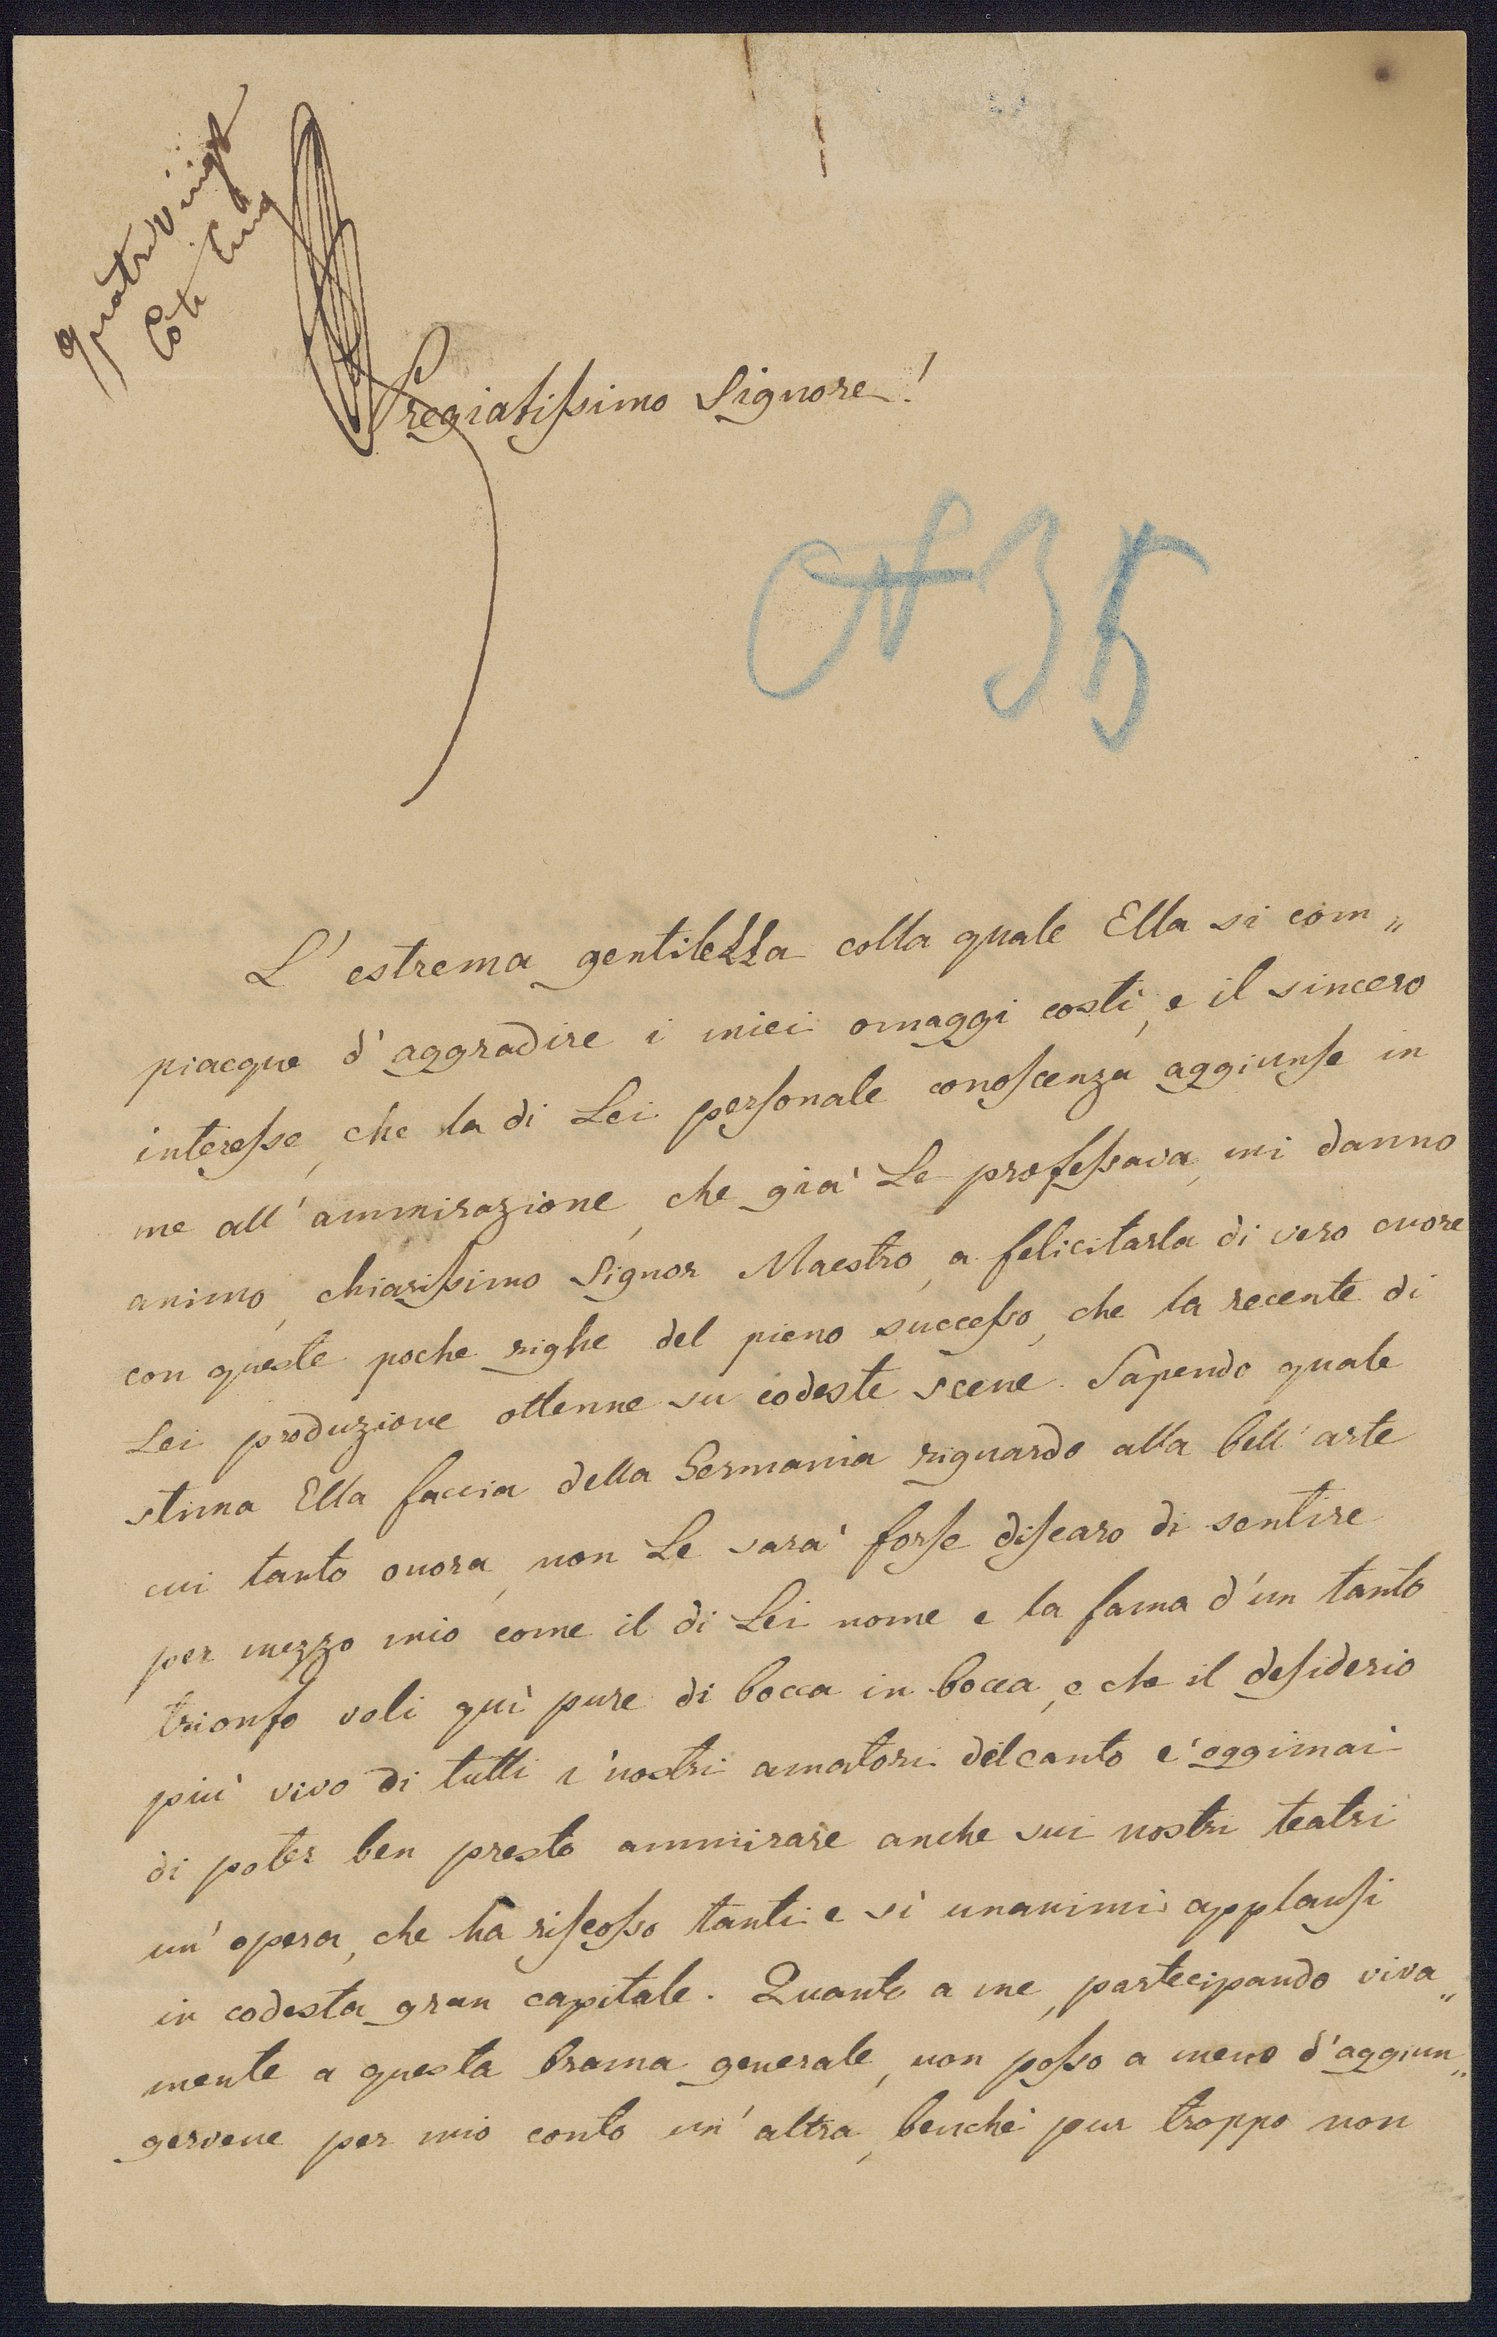 quatrevingt
Cote cinq
Pregiatissimo Signore!
N 35
L'estrema gentilezza colla quale Ella si com„
piacque d'aggradire i miei omaggi costì, e il sincero
interesse, che la di Lei personale conoscenza aggiunse in
me all'ammirazione, che già Le professava, mi danno
animo, chiarissimo Signor Maestro, a felicitarla di vero cuore
con queste poche righe del pieno successo, che la recente di
Lei produzione ottenne su codeste scene. Sapendo quale
stima Ella faccia della Germania riguardo alla bell'arte
cui tanto onora, non Le sarà forse discaro di sentire
per mezzo mio come il di Lei nome e la fama d'un tanto
trionfo voli quì pure di bocca in bocca, e che il desiderio
più vivo di tutti i nostri amatori del canto e' oggimai
di poter ben presto ammirare anche sui nostri teatri
un' opera, che ha riscosso tanti e sì unanimi applausi
in codesta gran capitale. Quanto a me, partecipando viva„
mente a questa brama generale, non posso a meno d'aggiun„
gervene per mio conto un' altra, benchè pur troppo non